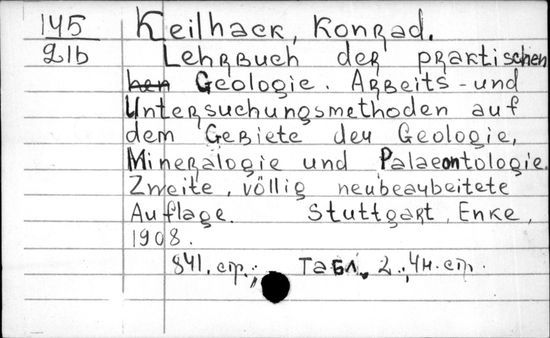 145 Keilhack, Konrad.
21b Lehrbuch der praktischen
hen Geologie. Arbeits-und
Untersuchungsmethoden auf
dem Gebiete der Geologie,
Mineralogie und Palaeontologie.
Zweite, völlig neubearbeitete
Auflage. Stuttgart, Enke,
1908.
841. стр.; Табл. 2.; 4н. стр.